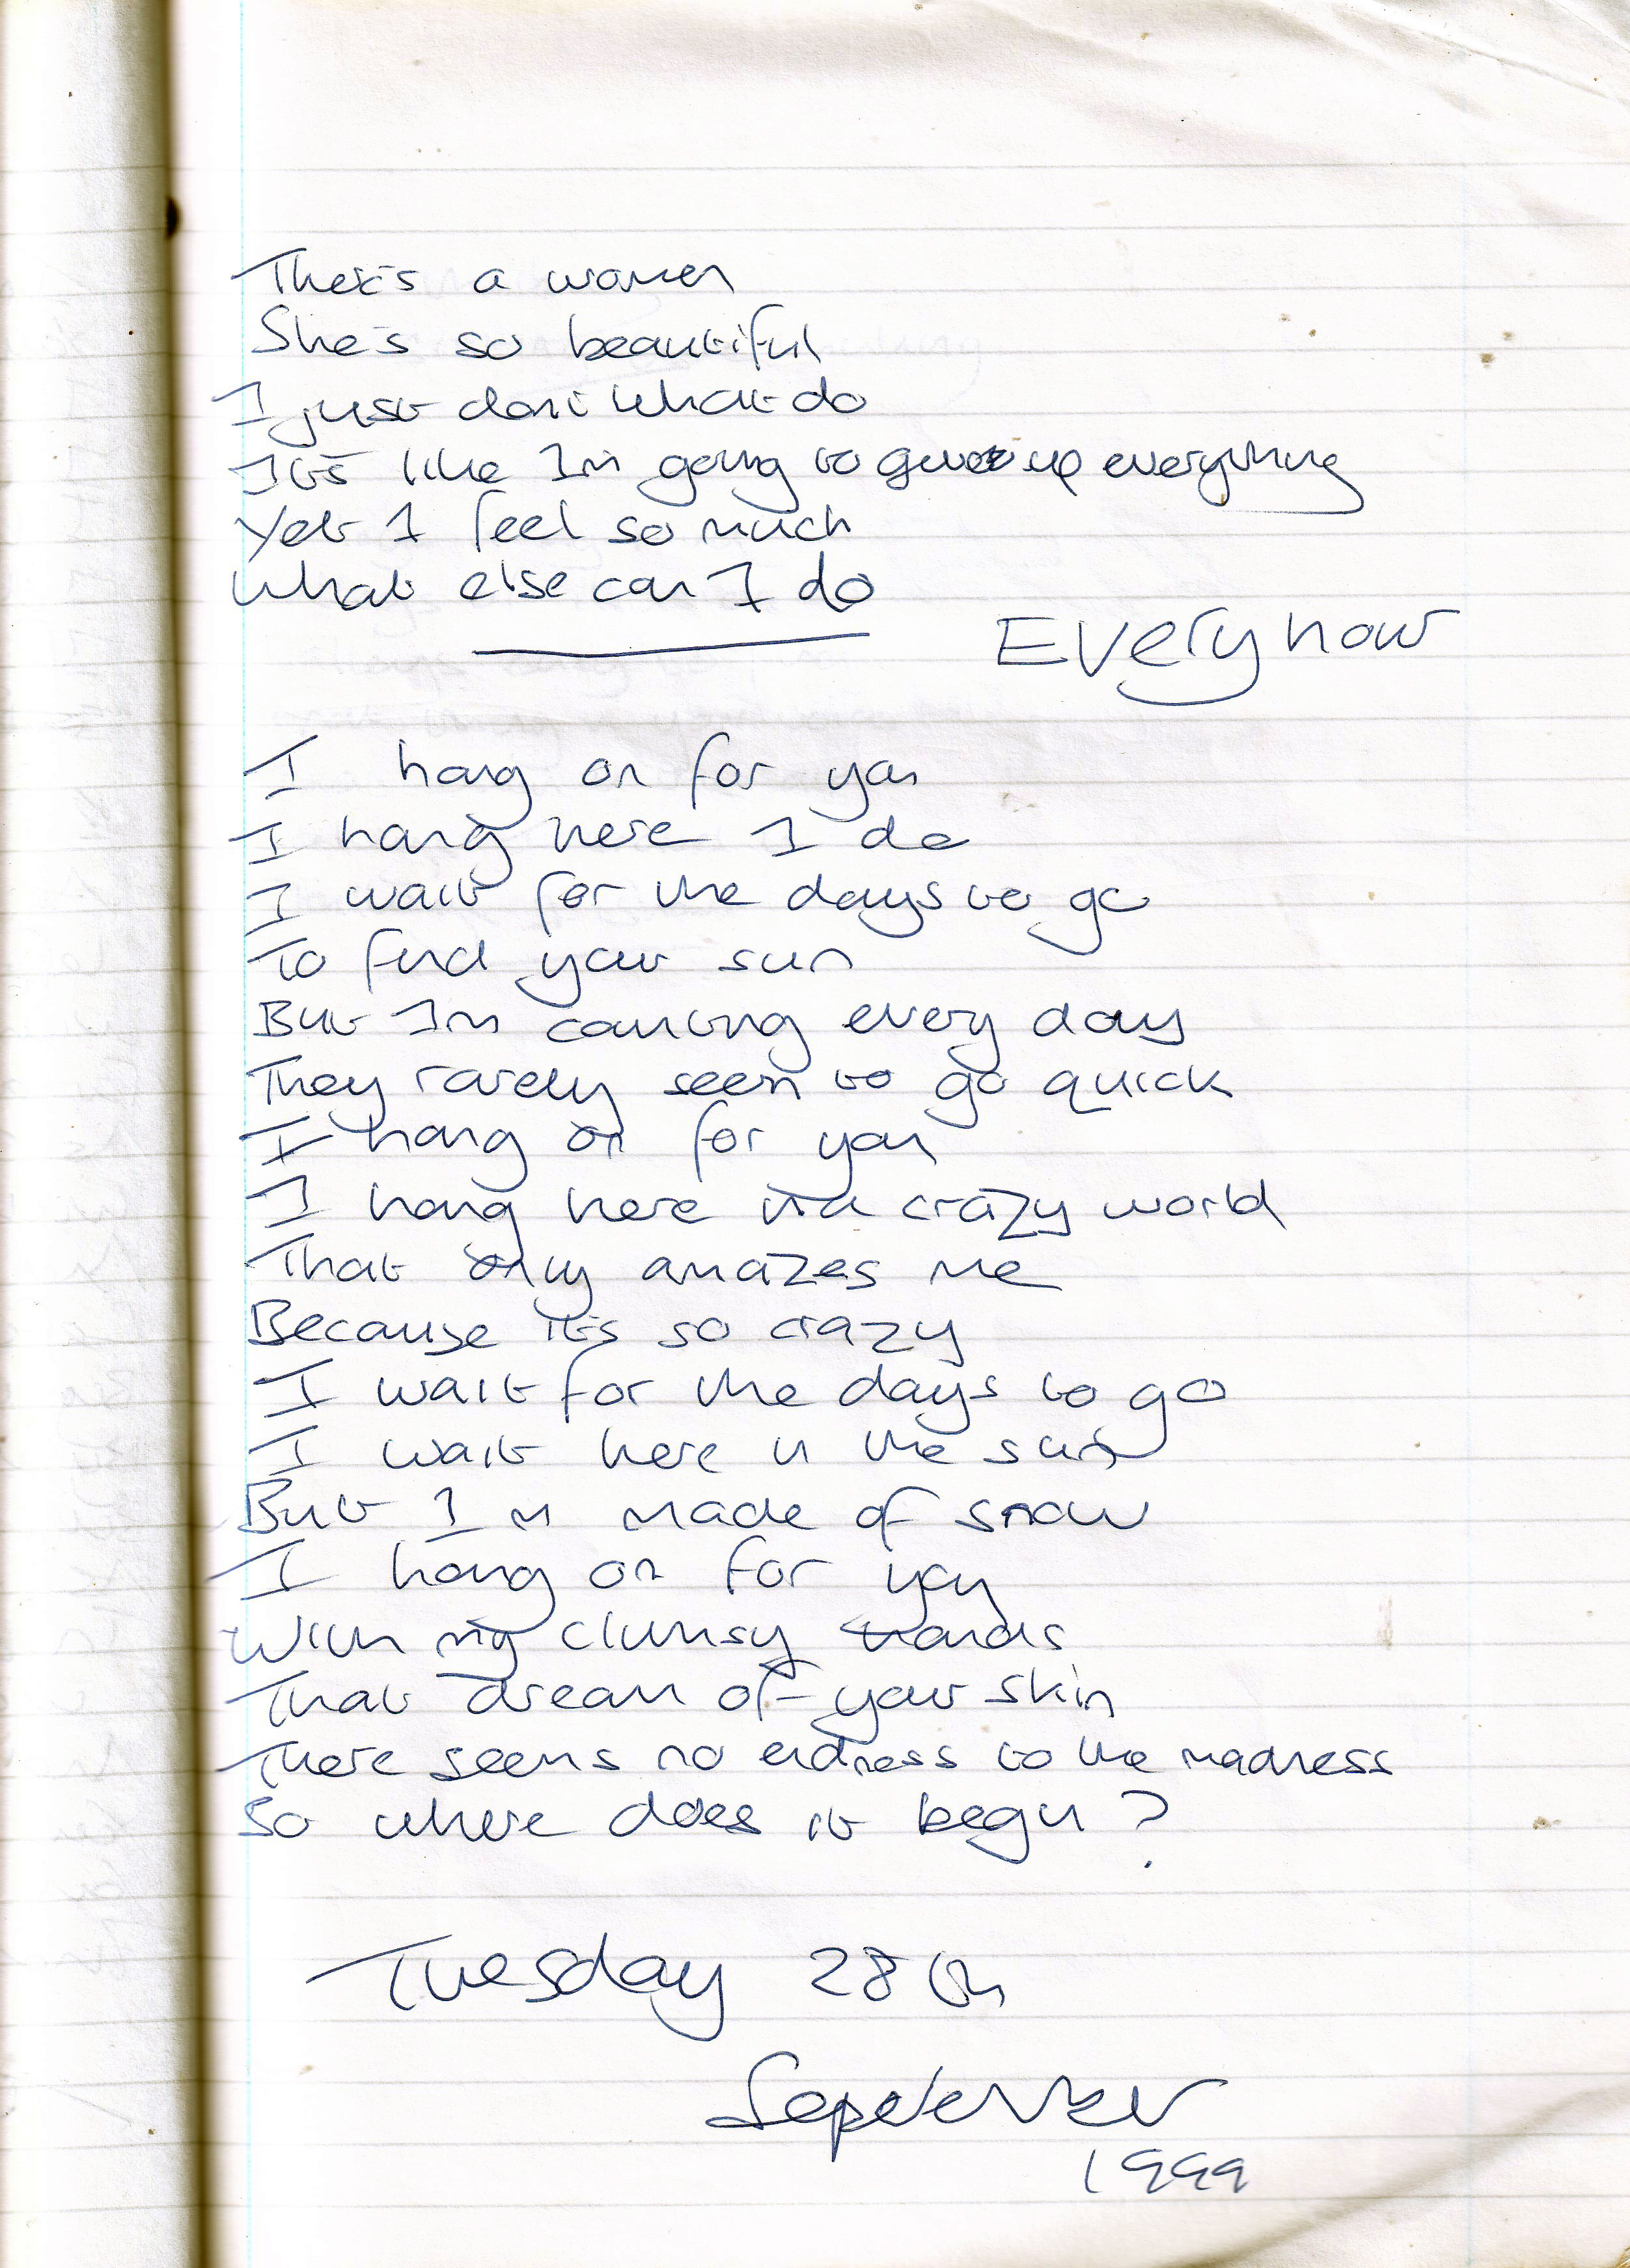 There's a women
She's so beautiful
I just dont what do
It's like Im going to give up everything
Yet I feel so much
What else can I do
Every hour
I hang on for you
I hang here I do
I wait for the days to go
To find your sun
But Im counting every day
They rarely seem to go quick
I hang on for you
I hang here in a crazy world
That only amazes me
Because it's so crazy
I wait for the days to go
I wait here in the sun
But Im made of snow
I hang on for you
With my clumsy hands
That dream of your skin
There seems no endness to the madness
So where does it begin ?
Tuesday 28th
September
1999